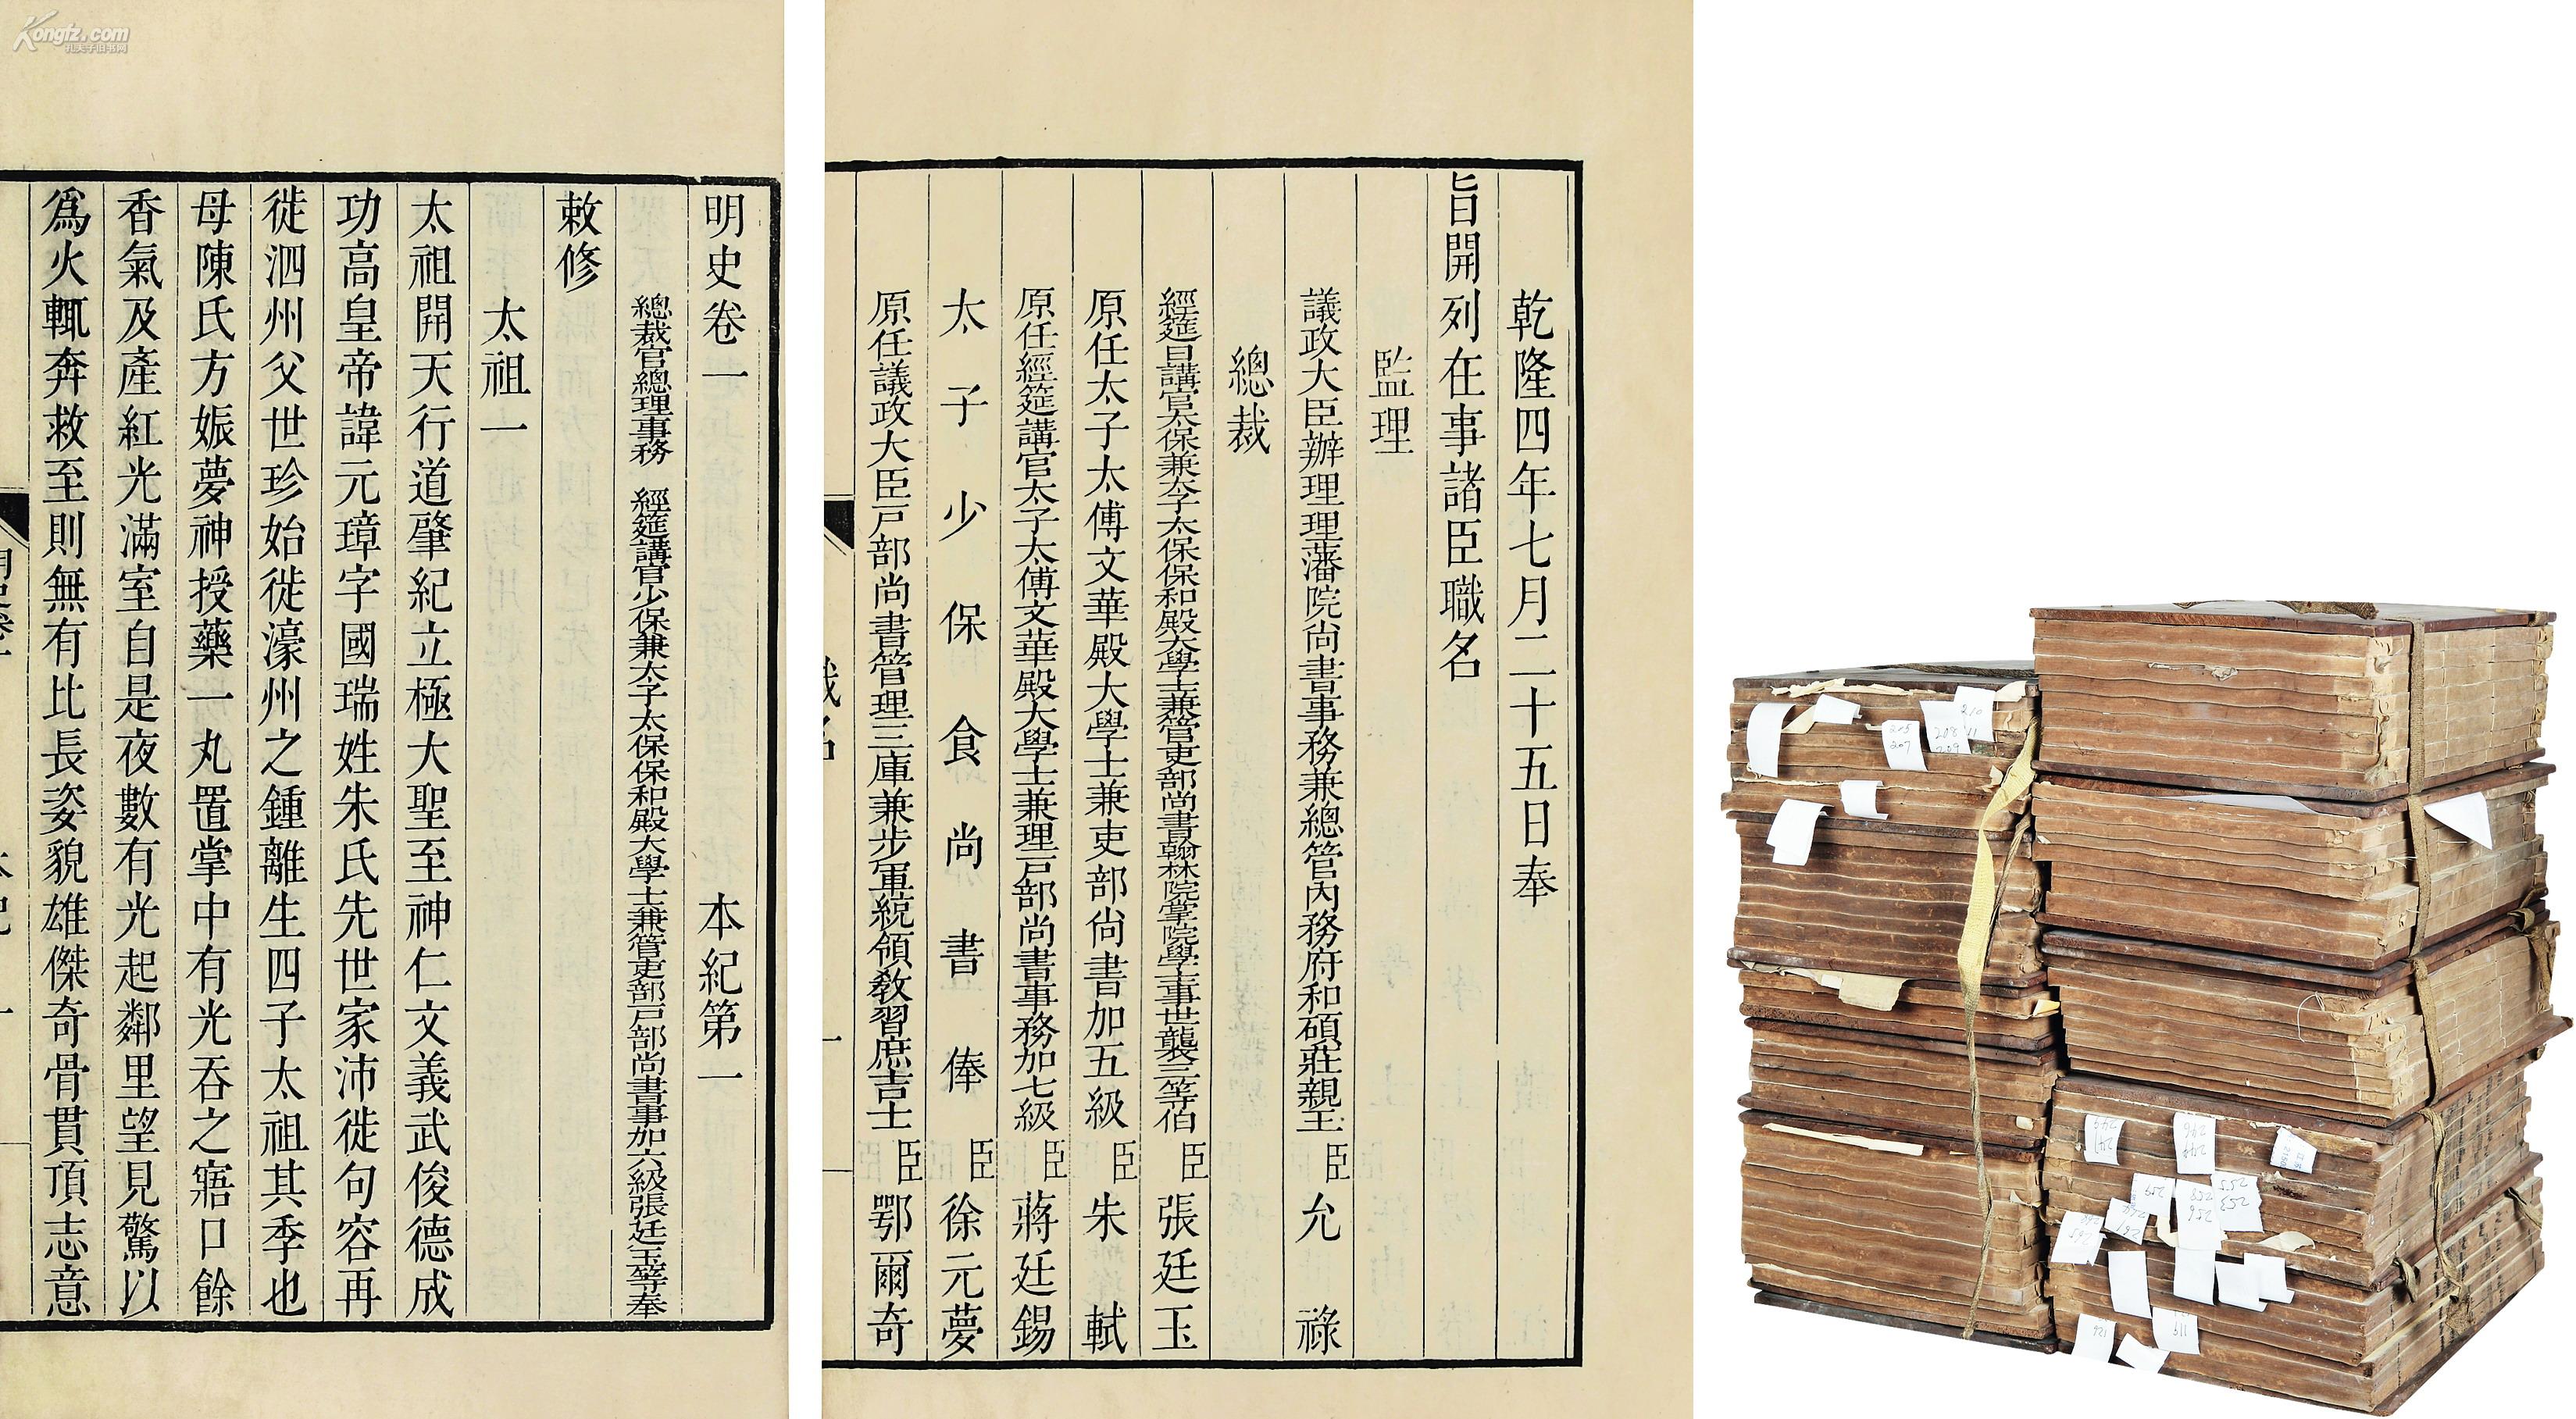 Kongfz.com
孔夫子旧书网
明史卷一 本紀第一
總裁官總理事務 經筵講官少保兼太子太保保和殿大學士兼管吏部戶部尚書事加六級張廷玉等奉
敕修
太祖一
太祖開天行道肇紀立極大聖至神仁文義武俊德成
功高皇帝諱元璋字國瑞姓朱氏先世家沛徙句容再
徙泗州父世珍始徙濠州之鍾離生四子太祖其季也
母陳氏方娠夢神授藥一丸置掌中有光吞之寤口餘
香氣及產紅光滿室自是夜數有光起鄰里望見驚以
爲火輒奔救至則無有比長姿貌雄傑奇骨貫頂志意
乾隆四年七月二十五日奉
旨開列在事諸臣職名
監理
議政大臣辦理理藩院尚書事務兼總管內務府和碩莊親王臣允祿
總裁
經筵日講官太保兼太子太保保和殿大學士兼管吏部尚書翰林院掌院學士事世襲三等伯臣張廷玉
原任太子太傅文華殿大學士兼吏部尚書加五級臣朱軾
原任經筵講官太子太傅文華殿大學士兼理戶部尚書事務加七級臣蔣廷錫
太子少保食尚書俸臣徐元夢
原任議政大臣戶部尚書管理三庫兼步軍統領教習庶吉士臣鄂爾奇
職名 一
210
215
207
208
209